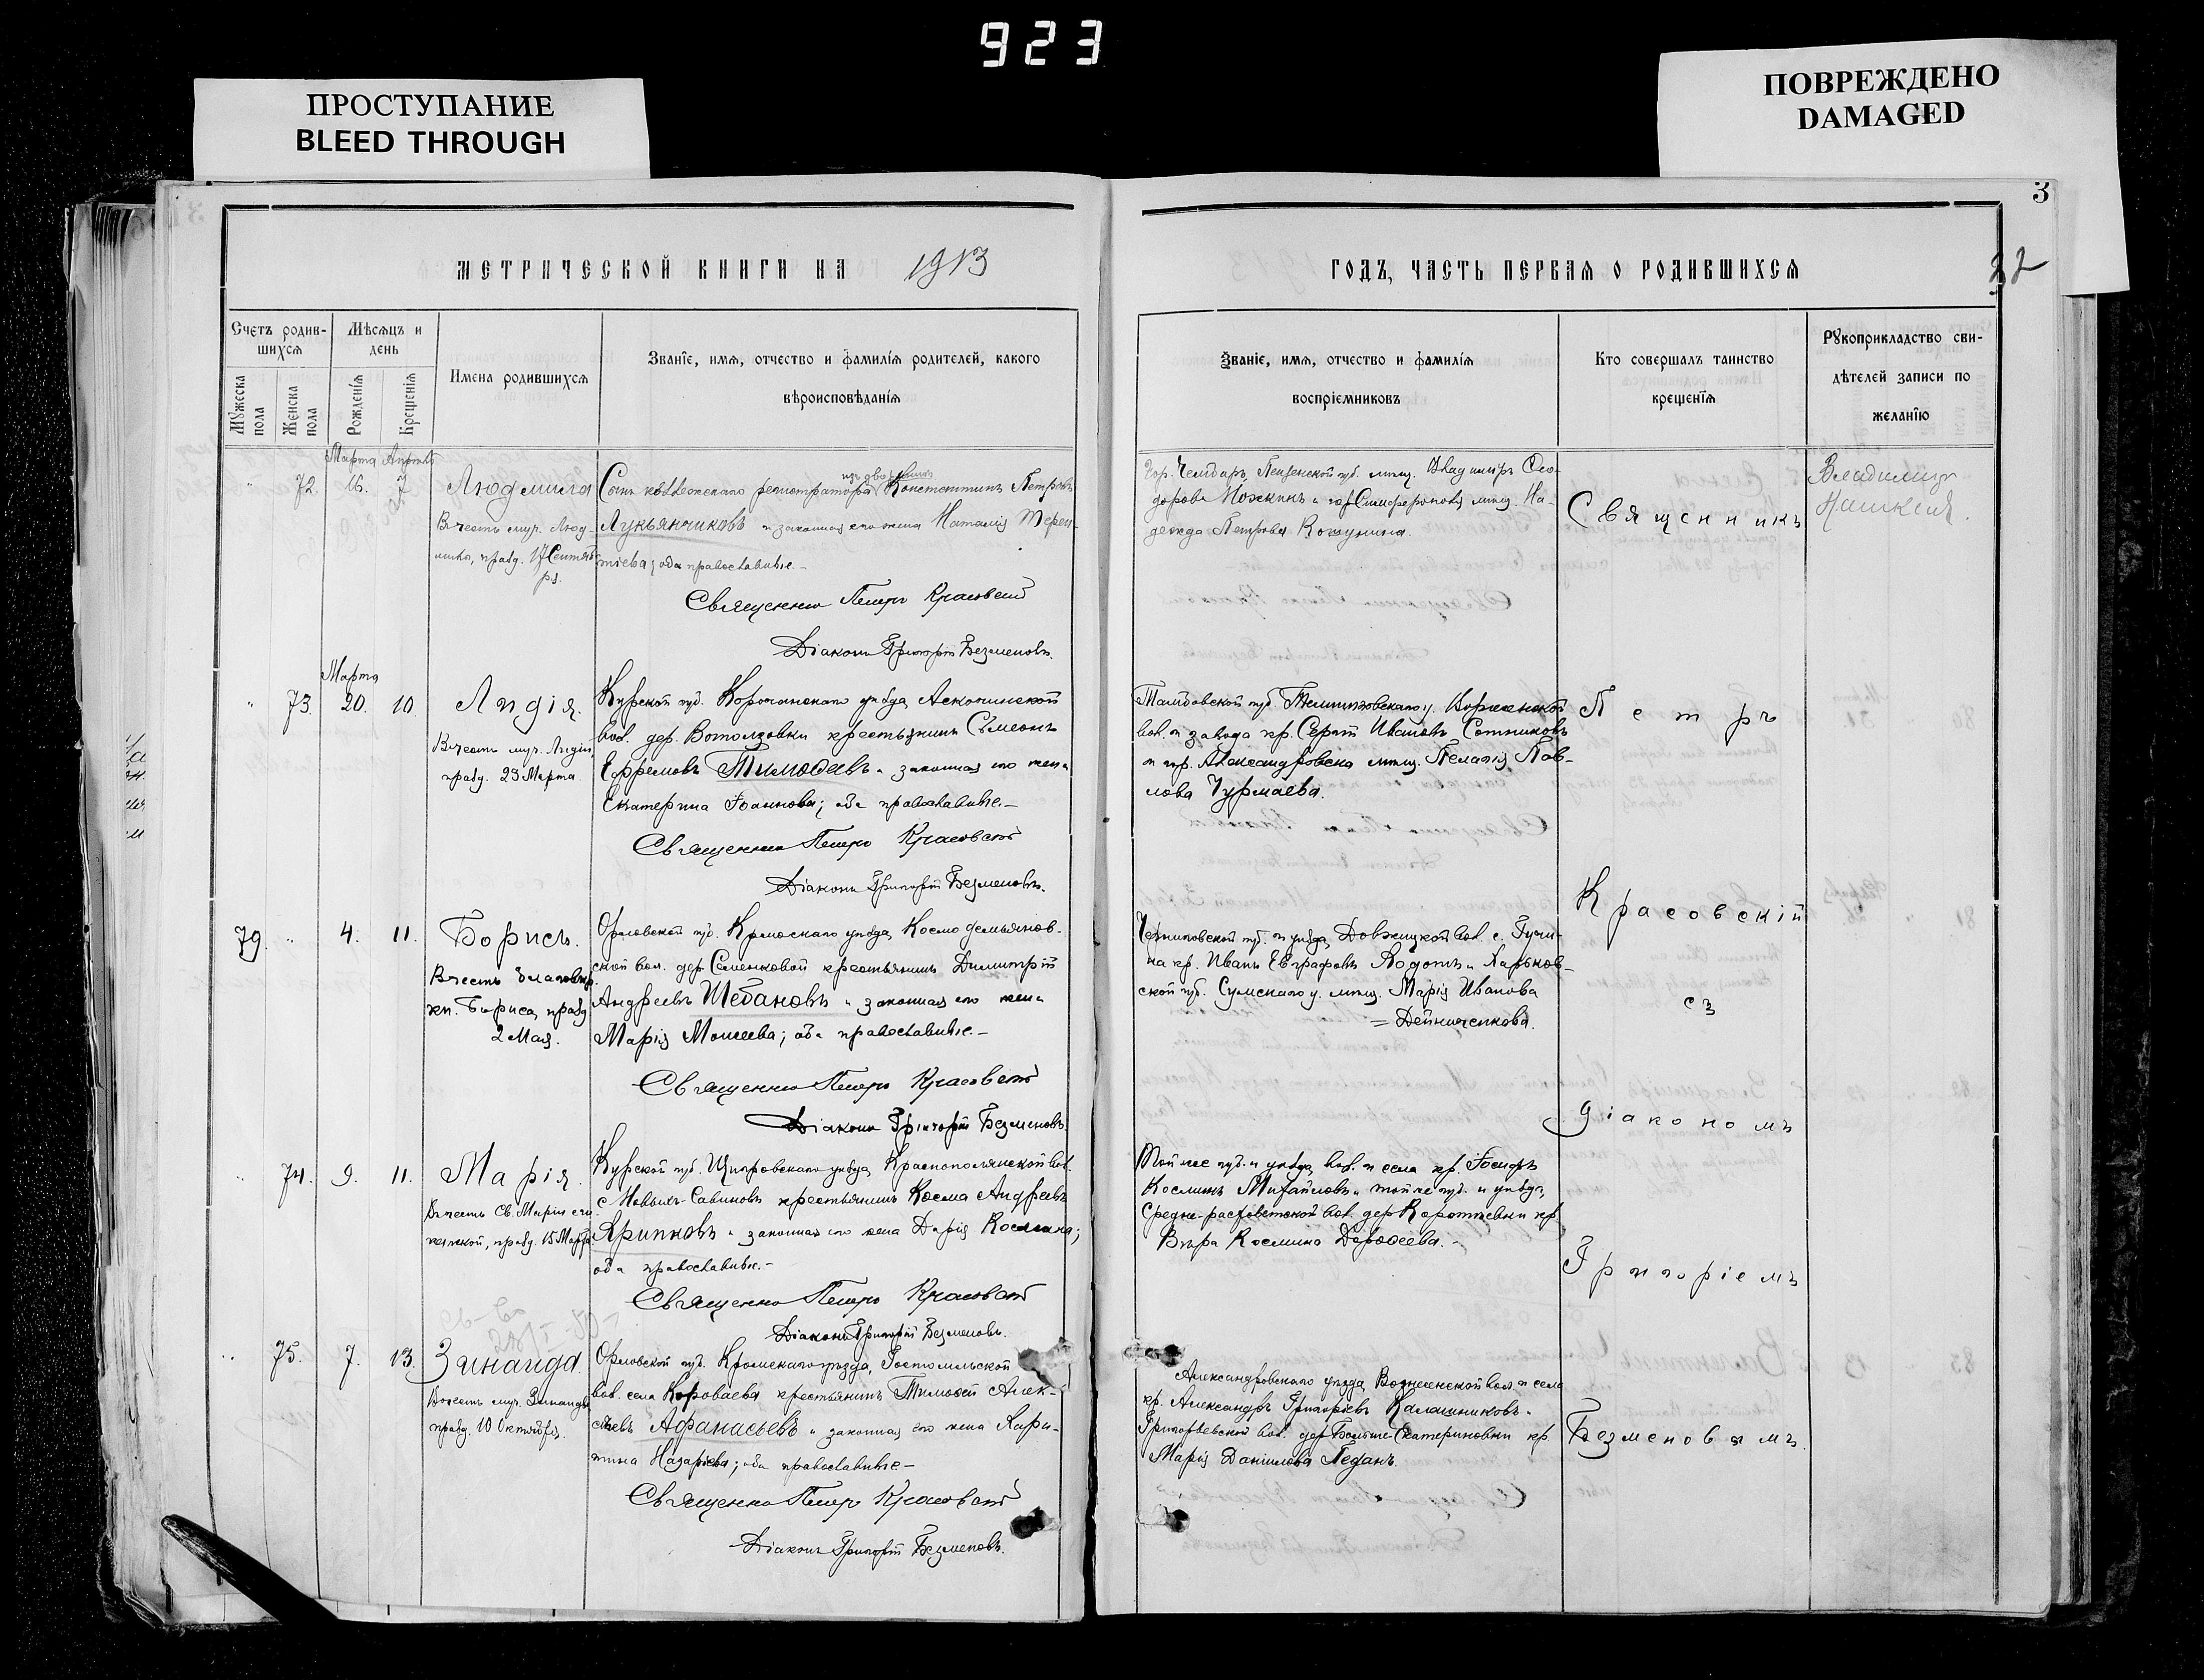 923
ПРОСТУПАНИЕ
BLEED THROUGH
ПОВРЕЖДЕНО
DAMAGED
3
22
МЕТРИЧЕСКОЙ КНИГИ НА 1913
ГОДЪ, ЧАСТЬ ПЕРВАЯ О РОДИВШИХСЯ
Счетъ родив-
шихся
Мѣсяцъ и
день
Мужеска пола
Женска пола
Рожденія
Крещенія
Имена родившихся
Званіе, имя, отчество и фамилія родителей, какого
вѣроисповѣданія
Званіе, имя, отчество и фамилія
воспріемниковъ
Кто совершалъ таинство
крещенія
Рукоприкладство сви-
дѣтелей записи по
желанію
Марта Апрѣль
72. 16. 7 Людмила
Въ честь муч. Люд-
милы, празд. 17 Сентяб-
ря.
Сынъ коллежскаго регистратора Константинъ Петровъ
Лукьянчиковъ и законная его жена Наталія Терен-
тіева; оба православные.
Священникъ Петръ Красовскій
Діаконъ Григорій Безменовъ.
Пензенской губ. мѣщ. Владиміръ Ѳео-
доровъ и гор. Симферополя мѣщ. На-
дежда Петрова
Владиміръ
Марта
73. 20. 10. Лидія.
Въ честь муч. Лидіи,
празд. 23 Марта
Курской губ. Корочанскаго уѣзда,
вол. дер. крестьянинъ Сѵмеонъ
Ефремовъ Тимоѳеевъ и законная его жена
Екатерина Іоаннова; оба православные.—
Священникъ Петръ Красовскій
Діаконъ Григорій Безменовъ.
Тамбовской губ.
вол. и завода кр. Сергій Ивановъ Сотниковъ
и гор. Александровска мѣщ. Пелагія Пав-
лова Чурмаева.
79. 4. 11. Борисъ.
Въ честь благовѣр.
кн. Бориса, празд.
2 Мая.
Орловской губ. Кромскаго уѣзда, Космодемьянов-
ской вол. дер. Семенковой крестьянинъ Димитрій
Андреевъ Шебановъ и законная его жена
Марія Моисеева; оба православные.—
Священникъ Петръ Красовскій
Діаконъ Григорій Безменовъ.
Черниговской губ. и уѣзда, вол. с.
кр. Иванъ Евграфовъ и Харьков-
ской губ. Сумскаго у. мѣщ. Марія Иванова
= Дейниченкова.
74. 9. 11. Марія.
Въ честь св. Маріи
празд. 15 Марта.
Курской губ. Щигровскаго уѣзда, Краснополянской вол.
с. крестьянинъ Косма Андреевъ
Ярипковъ и законная его жена Дарія Космина;
оба православные.—
Священникъ Петръ Красовскій
Діаконъ Григорій Безменовъ.
Той же губ. и уѣзда, вол. и села кр. Іосифъ
Косминъ Михайловъ и той же губ. и уѣзда,
вол. дер. кр.
Вѣра Космина Дороѳеева.—
75. 7. 13. Зинаида.
Въ честь муч. Зинаиды
празд. 10 Октября.
Орловской губ. Кромскаго уѣзда, Гостомльской
вол. села Короваева крестьянинъ Тимоѳей Алек-
сѣевъ Афанасьевъ и законная его жена Хари-
тина Назарьева; оба православные—
Священникъ Петръ Красовскій
Діаконъ Григорій Безменовъ.
Александровскаго уѣзда, Вознесенской вол. и села
кр. Александръ Григорьевъ Калашниковъ и
Григорьевской вол. дер. Больше-Екатериновки кр.
Марія Даніилова Педанъ.
Священникъ
Петръ
Красовскій
съ
діакономъ
Григоріемъ
Безменовымъ.